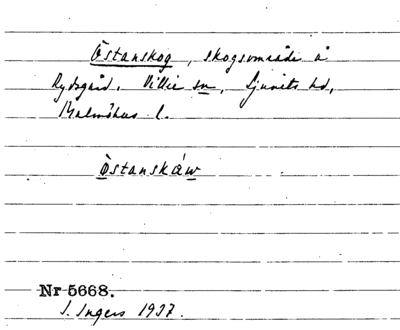 Östanskog, skogsområde å
Rydsgård, Villie sn, Ljunits hd,
Malmöhus l.
Östanskåw
Nr 5668.
I. Ingers 1937.